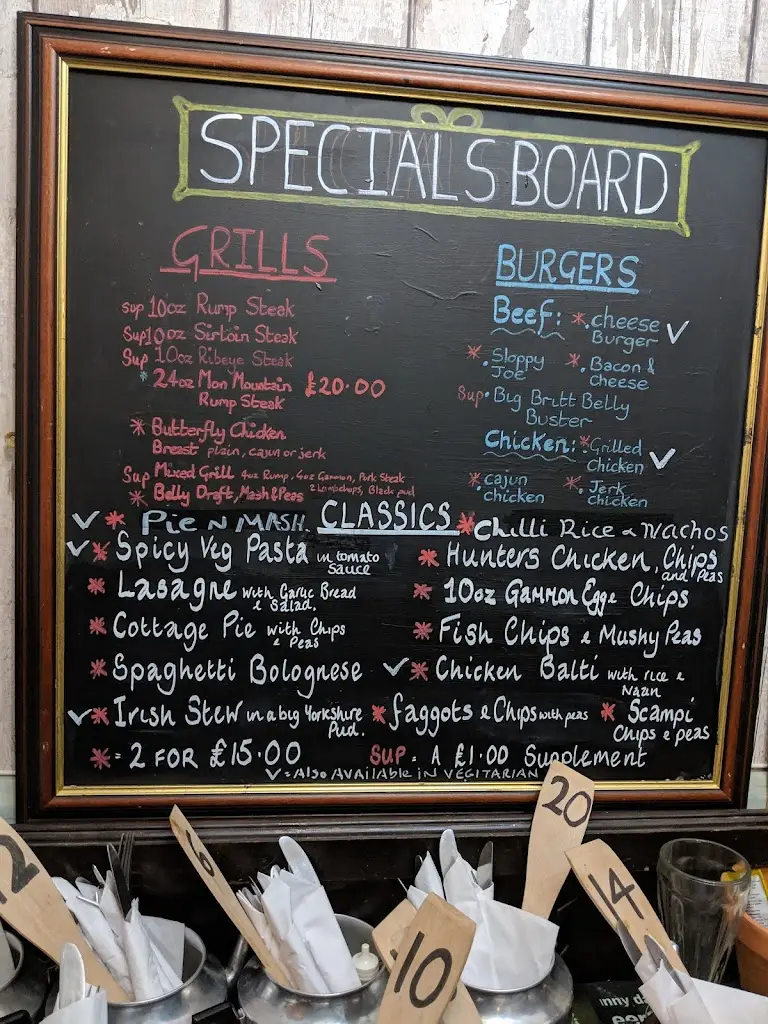 SPECIALS BOARD
GRILLS
Sup 10oz Rump Steak
Sup 10oz Sirloin Steak
Sup 10oz Ribeye Steak
* 24oz Man Mountain £20.00
Rump Steak
* Butterfly Chicken
Breast plain, cajun or jerk
Sup Mixed Grill 4oz Rump, 4oz Gammon, Pork Steak
2 Lambchops, Black pud
* Belly Draft, Mash & Peas
BURGERS
Beef: * . cheese ✓
Burger
* . Sloppy * . Bacon &
Joe Cheese
Sup . Big Britt Belly
Buster
Chicken: * . Grilled
Chicken ✓
* . Cajun * . Jerk
chicken Chicken
CLASSICS
✓ * Pie N MASH.
✓ * Spicy Veg Pasta in tomato
sauce
* Lasagne with Garlic Bread
& Salad.
* Cottage Pie with Chips
& Peas
* Spaghetti Bolognese
✓ * Irish Stew in a big Yorkshire
Pud.
* Chilli Rice & Nachos
* Hunters Chicken, Chips
and Peas
* 10oz Gammon Egg & Chips
* Fish Chips & Mushy Peas
✓ * Chicken Balti with rice &
Naan
* faggots & Chips with peas * Scampi
Chips & peas
* = 2 FOR £15.00 SUP = A £1.00 Supplement
✓ = Also Available in VEGITARIAN
12
6
10
20
14